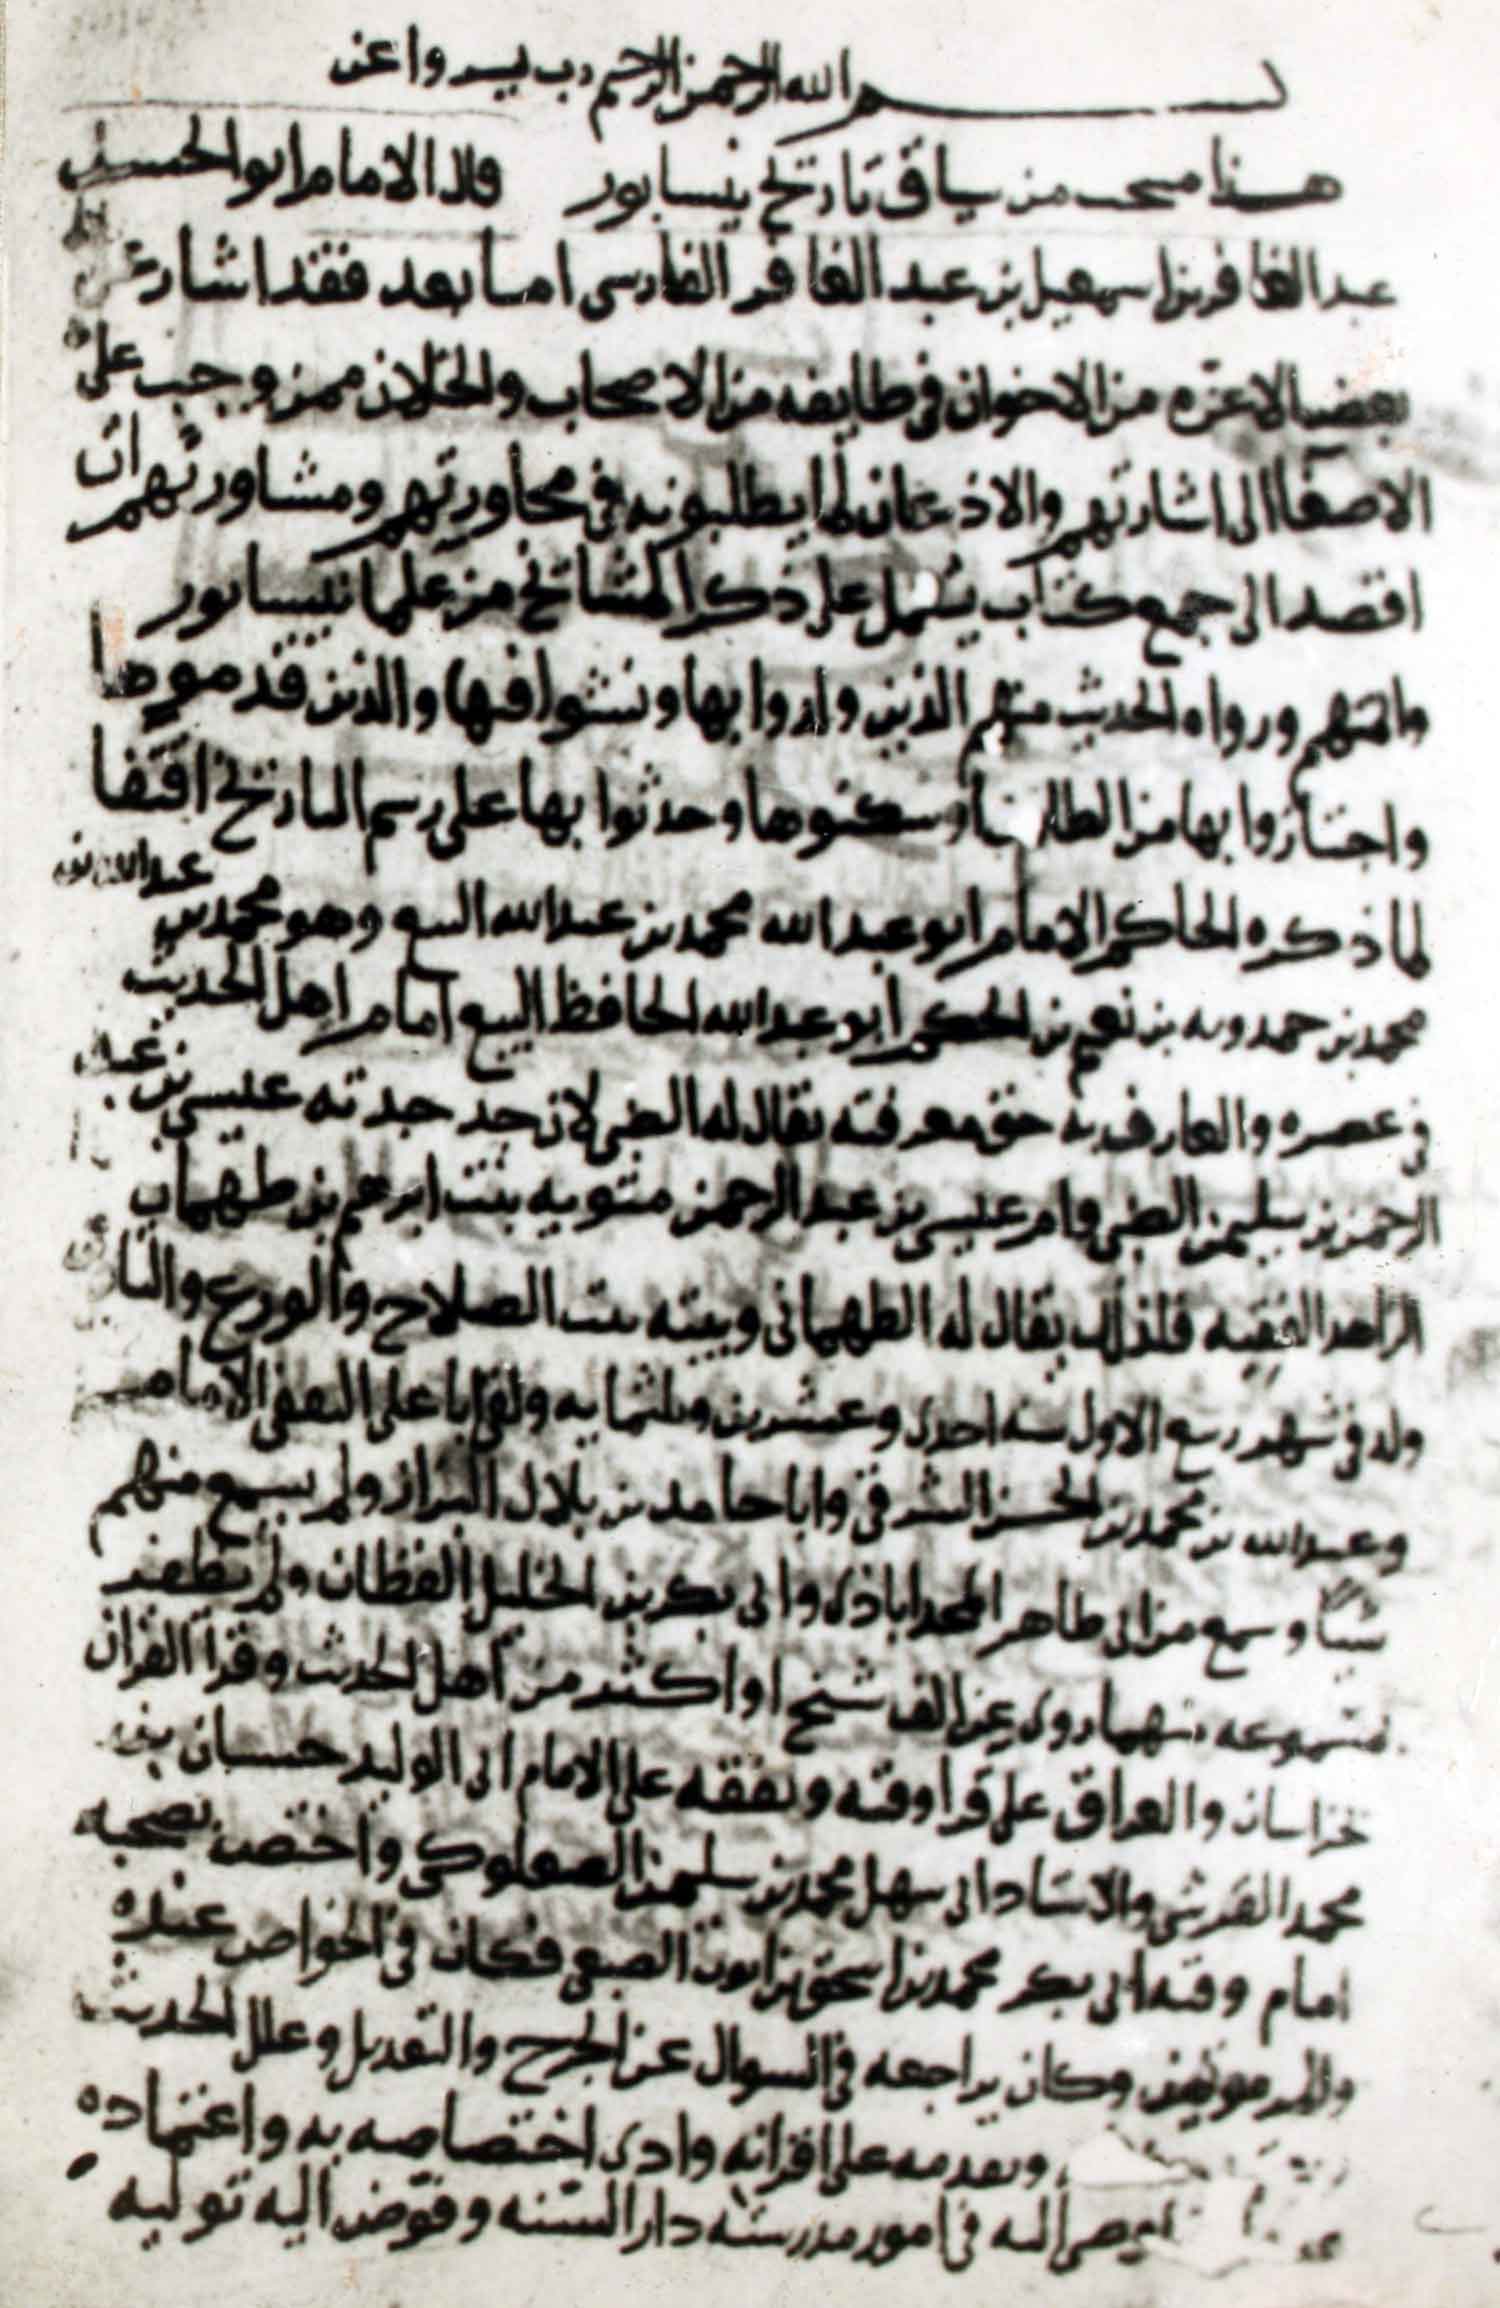 بسم الله الرحمن الرحيم رب يسر واعن
هذا منتخب من سياق تاريخ نيسابور قال الامام ابو الحسن
عبد الغافر بن اسمعيل بن عبد الغافر الفارسي اما بعد فقد اشار
بعض الاعزه من الاخوان في طايفه من الاصحاب والخلان ممن وجب على
الاصغا الى اشارتهم والاذعان لما يطلبونه في محاورتهم ومشاورتهم ان
اقصد الى جمع كتاب يشمل على ذكر المشائخ من علما نيسابور
وائمتهم ورواه الحديث منهم الذين ولدوا بها ونشوا فيها والذين قدموها
واجتازوا بها من الطارئين او سكنوها وحدثوا بها على رسم التاريخ اقتفا
لما ذكره الحاكم الامام ابو عبد الله محمد بن عبد الله البيع وهو محمد بن عبد الله بن
محمد بن حمدويه بن نعيم بن الحكم ابو عبد الله الحافظ البيع امام اهل الحديث
في عصره والعارف به حق معرفته يقال له الضبي لان جد جدته عيسى بن عبد
الرحمن بن سليمن الضبي وام عيسى بن عبد الرحمن متويه بنت ابرهيم بن طهمان
الزاهد الفقيه فلذلك يقال له الطهماني وبيته بيت الصلاح والورع والتا
ولد في شهر ربيع الاول سنه احدى وعشرين وثلثمايه ولقي ابا علي الثقفي الامام
وعبد الله بن محمد بن الحسن الشرقي وابا حامد بن بلال البزاز ولم يسمع منهم
شيئا وسمع من ابي طاهر المحمداباذي وابي بكر بن الخليل القطان ولم يظفر
بمسموعه منهما روى عن الف شيخ او اكثر من اهل الحديث وقرا القران
خراسان والعراق على قرا وقته وتفقه على الامام ابي الوليد حسان بن
محمد القرشي والاستاد ابي سهل محمد بن سليمن الصعلوكي واختص بصحبه
امام وقته ابي بكر محمد بن اسحق بن ايوب الصبغي فكان في الخواص عنده
وكان يراجعه في السوال عن الجرح والتعديل وعلل الحديث
ويقدمه على اقرانه وادى اختصاصه به واعتماده
اليه في امور مدرسته دار السنه وفوض اليه توليه